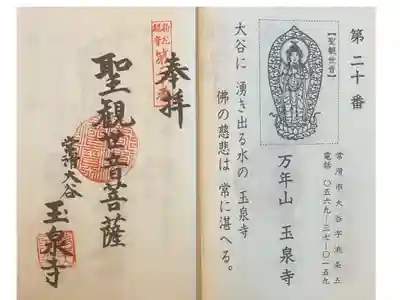 第二十番
【聖観世音】
常滑市大谷字奥条五
電話 〇五六九-三七-〇一五九
万年山 玉泉寺
大谷に 湧き出る水の 玉泉寺
佛の慈悲は 常に湛へる。
奉拝
聖観世音菩薩
常滑大谷
玉泉寺